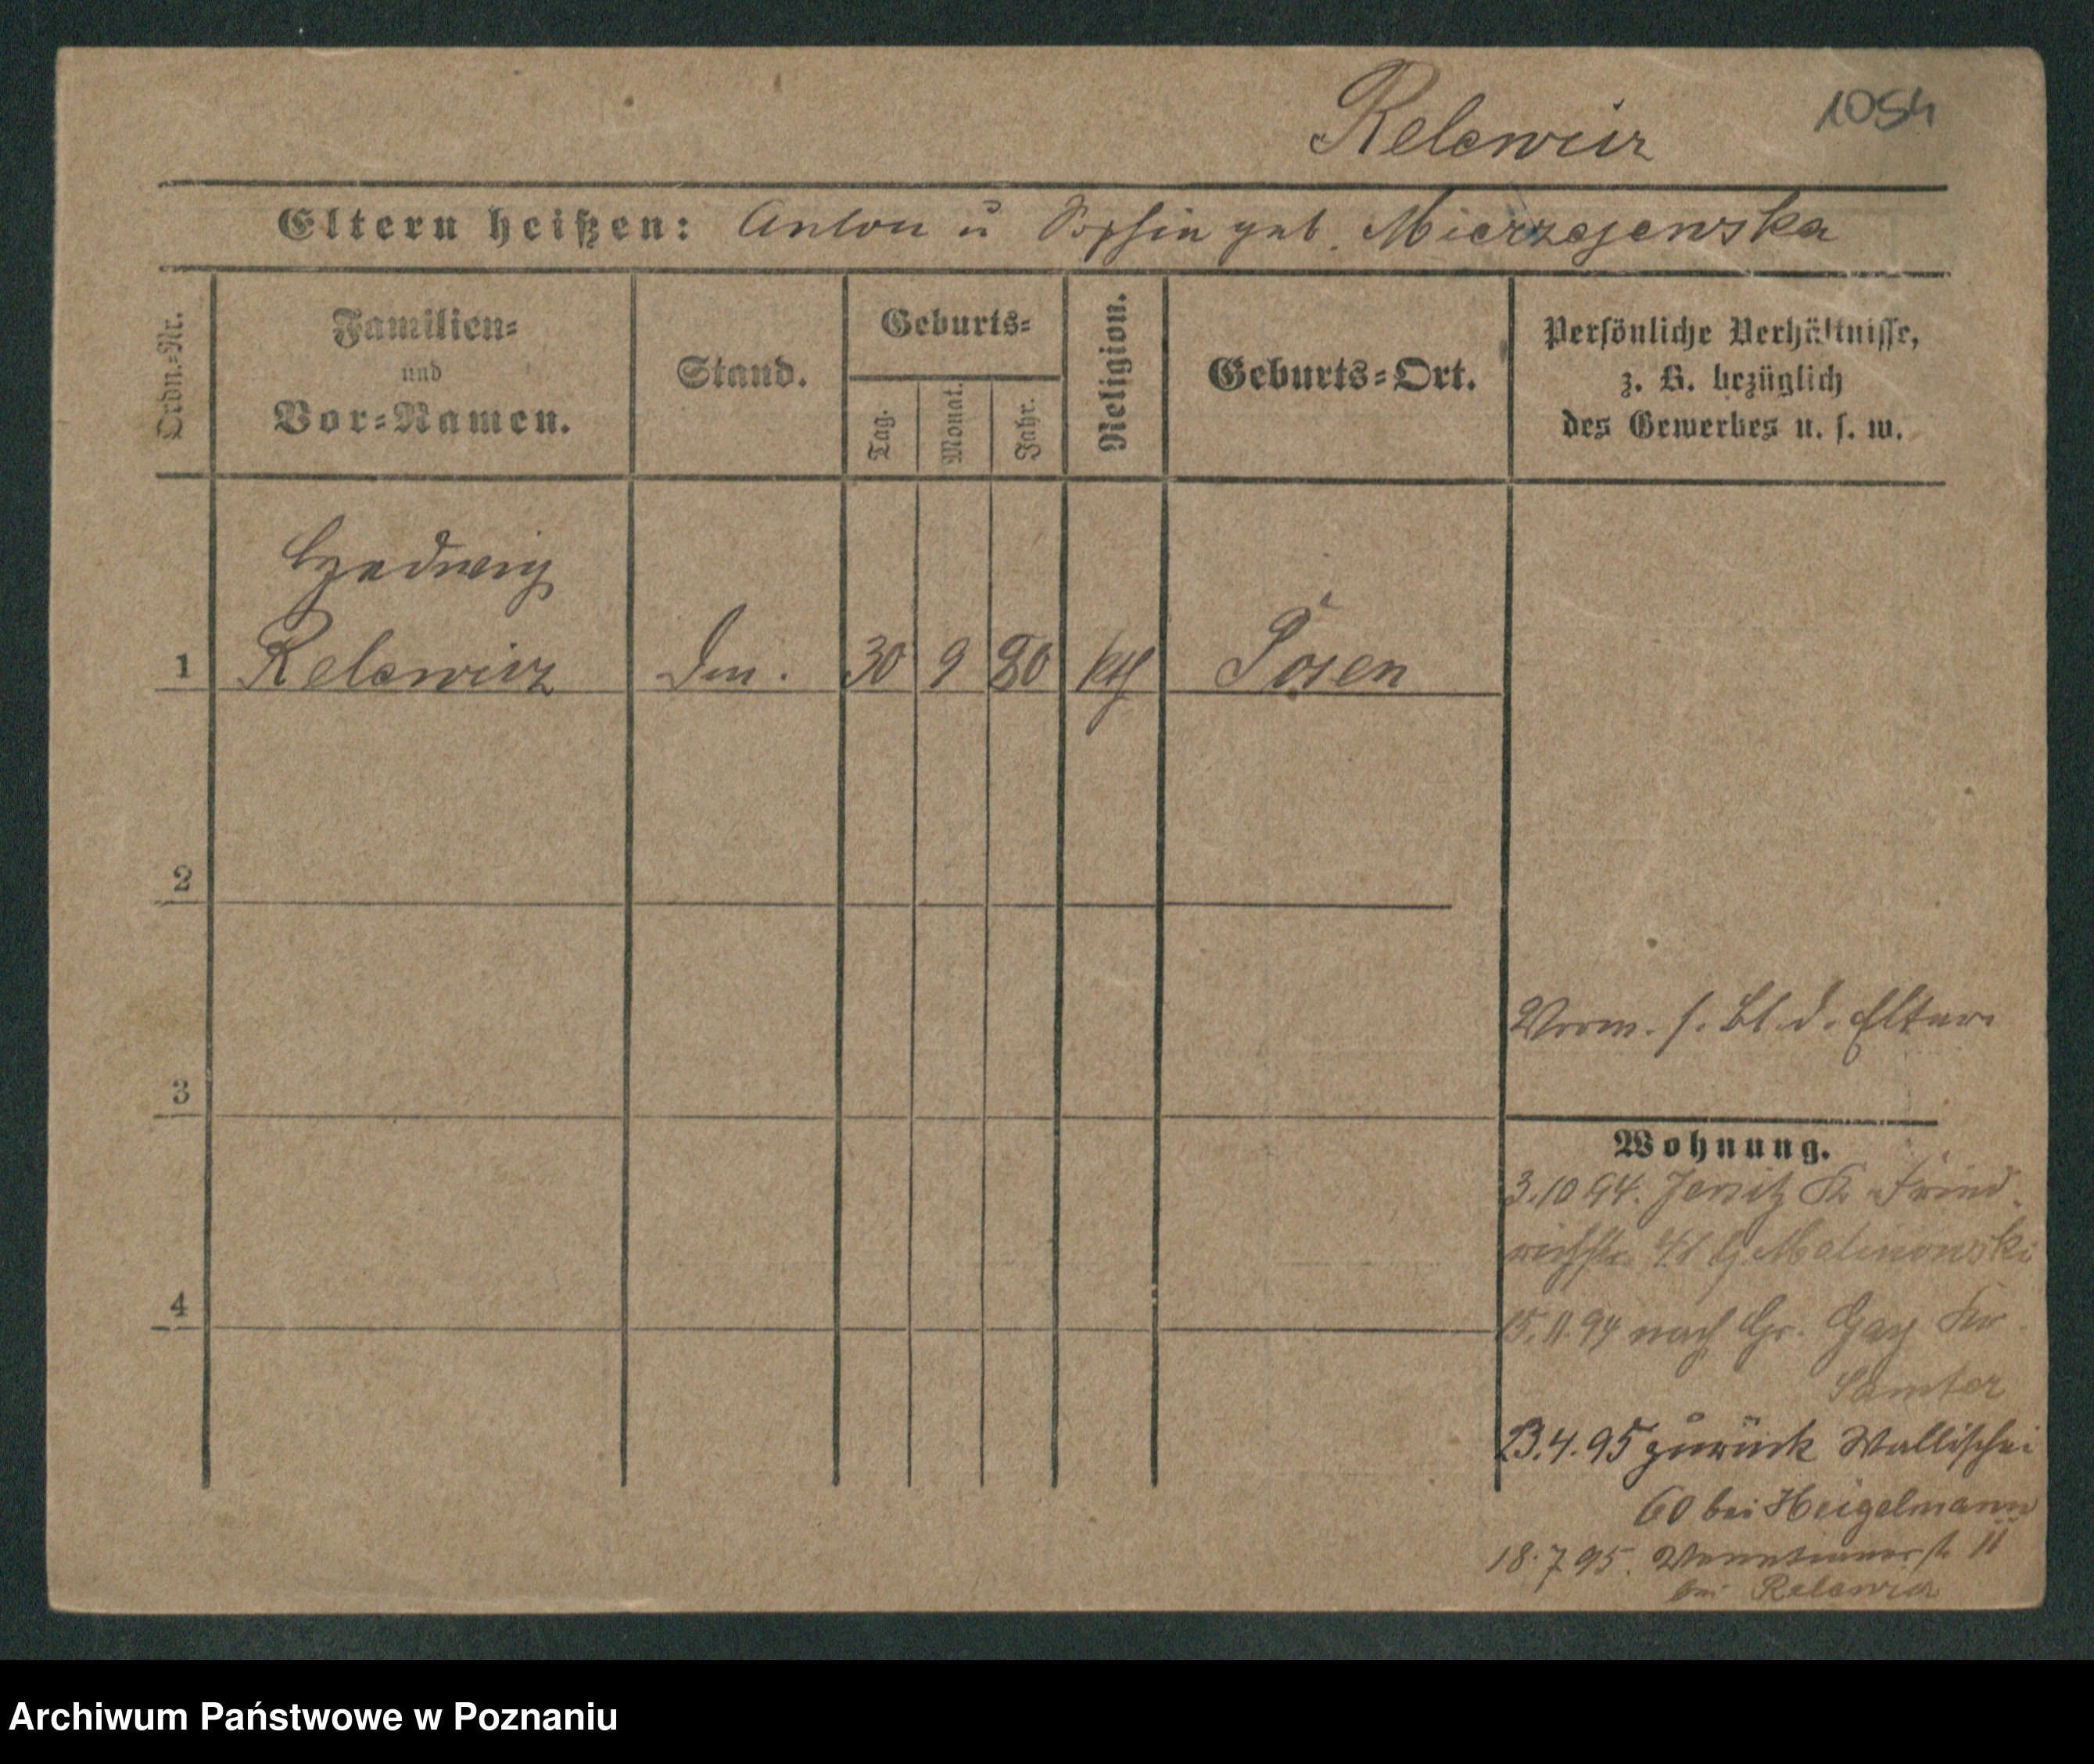 Relewicz
1054
Eltern heißen: Anton u Sophia geb. Mierzejewska
Ordn.=Nr.
Familien=
und
Vor=Namen.
Stand.
Geburts=
Tag.
Monat.
Jahr.
Religion.
Geburts=Ort.
Persönliche Verhältnisse,
z. B. bezüglich
des Gewerbes u. s. w.
Hedwig
1 Relewicz 30 9 80 kth Posen
2
3
4
Vorm. s. Bl. d. Eltern
Wohnung.
3.10 94. Jersitz K. Fried
richstr. Malinowski
15.11.94 nach Gr. Gay Kr.
Samter
23.4.95 zurück Wallischei
60 bei Heigelmann
18.7 95. Venetianerstr 11
bei Relewicz
Archiwum Państwowe w Poznaniu